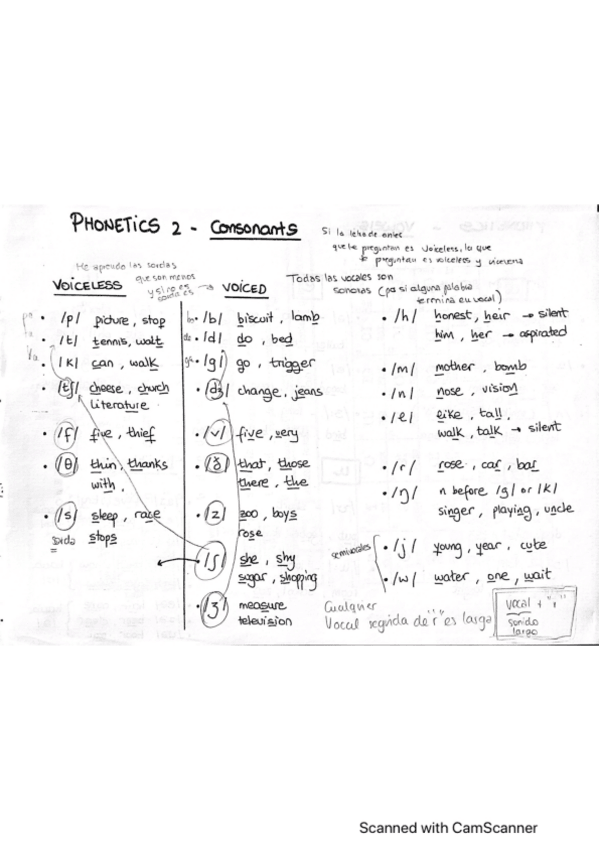 PHONETICS 2 - Consonants
Si la letra de antes
que te preguntan es voiceless, lo que
te preguntan es voiceless y viceversa
He aprendo las sordas
que son menos
y si no es
sorda es →
Todas las vocales son
sonoras (pa si alguna palabra
termina en vocal)
VOICELESS
pa • /p/ picture, stop
ta • /t/ tennis, walt
ka • /k/ can, walk
• /tʃ/ cheese, church
literature
• /f/ five, thief
• /θ/ thin, thanks
with,
• /s/ sleep, race
stops
VOICED
• /b/ biscuit, lamb
• /d/ do, bed
• /g/ go, trigger
• /dʒ/ change, jeans
• /v/ five, very
• /ð/ that, those
there, the
• /z/ zoo, boys
rose
• /ʃ/ she, shy
sugar, shopping
• /ʒ/ measure
television
• /h/ honest, heir → silent
him, her → aspirated
• /m/ mother, bomb
• /n/ nose, vision
• /l/ like, tall.
walk, talk → silent
• /r/ rose, car, bar
• /ŋ/ n before /g/ or /k/
singer, playing, uncle
semivocales
• /j/ young, year, cute
• /w/ water, one, wait
Cualquier
Vocal seguida de "r" es larga
vocal + "r"
sonido
largo
Scanned with CamScanner